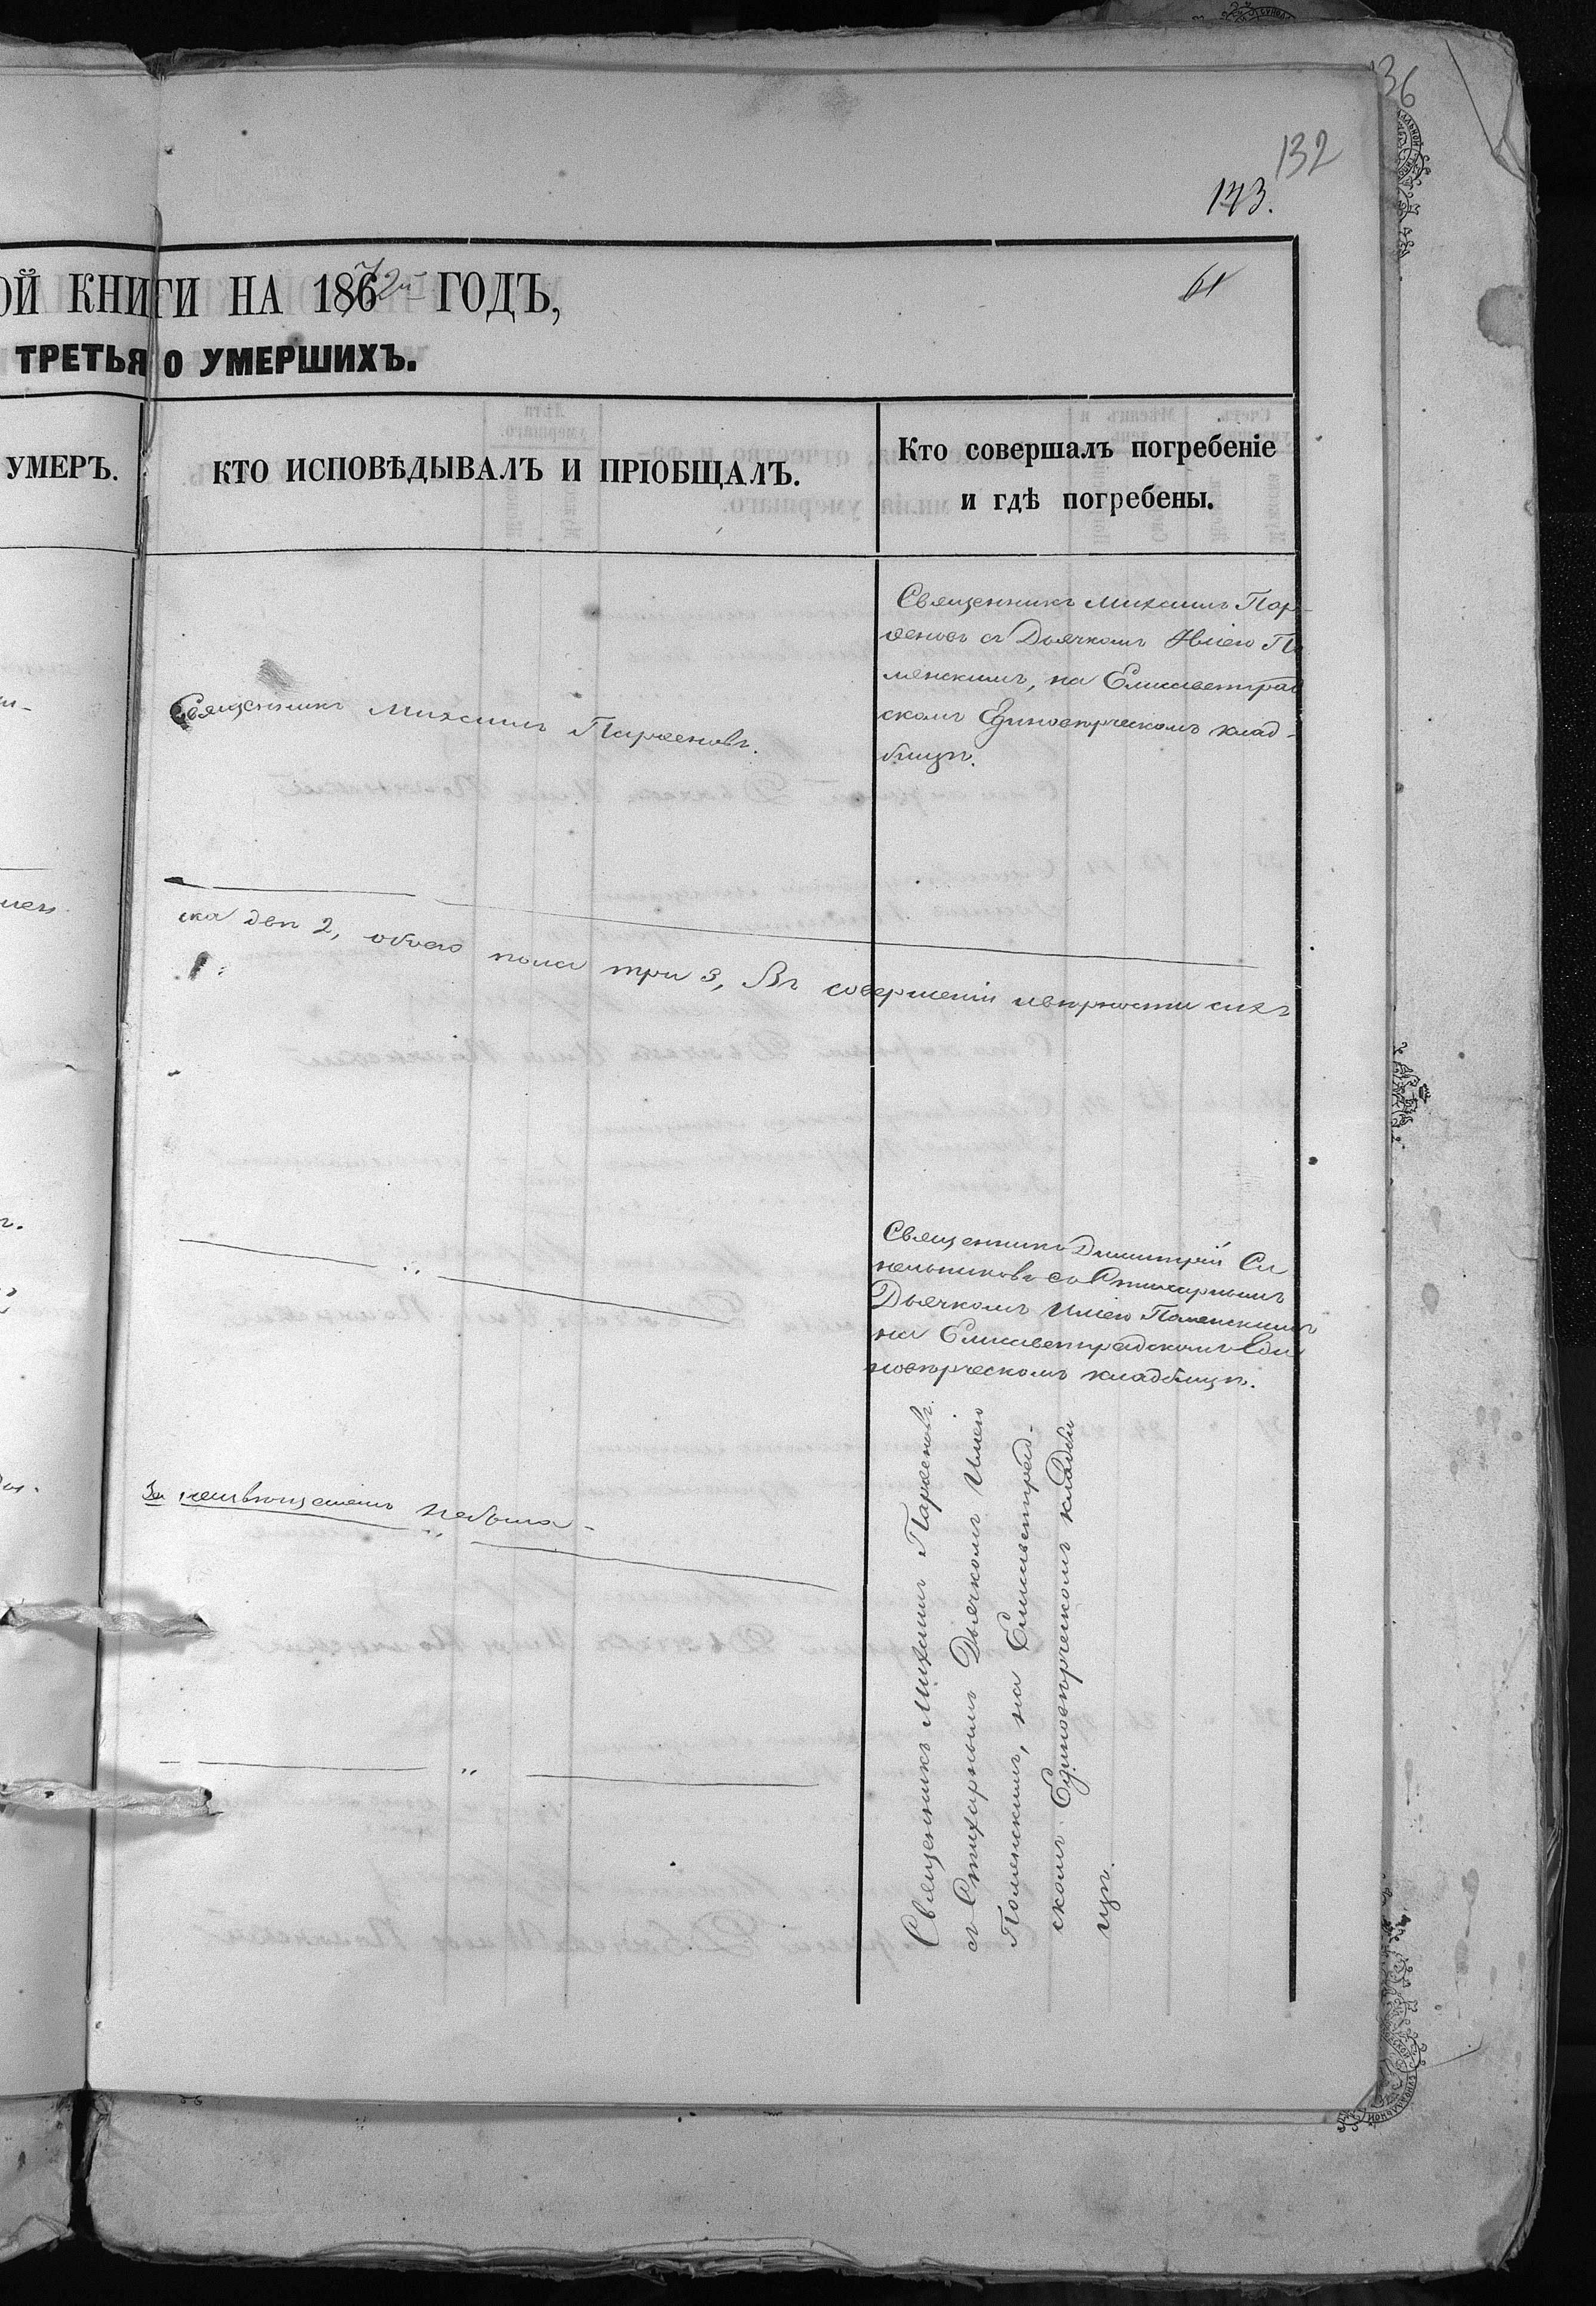 36
132
143.
ОЙ КНИГИ НА 1872й ГОДЪ,
61
ТРЕТЬЯ О УМЕРШИХЪ.
УМЕРЪ.
КТО ИСПОВѢДЫВАЛЪ И ПРІОБЩАЛЪ.
Кто совершалъ погребеніе
и гдѣ погребены.
Священникъ Михаилъ Парѳеновъ.
Священникъ Михаилъ Пар-
ѳеновъ съ Дьячкомъ Иліею По
ленскимъ, на Елисаветград
скомъ Единовѣрческомъ клад-
бищѣ.
ска двѣ 2, обоего пола три 3, Въ совершеніи и вѣрности сихъ
Священникъ Димитрій Си
нельниковъ со Стихарнымъ
Дьячкомъ Иліею Поленскимъ
на Елисаветградскомъ Еди
новѣрческомъ кладбищѣ.
За неимѣющемъ небыла-
Священникъ Михаилъ Парѳеновъ.
съ Стихарнымъ Дьячкомъ Иліею
Поленскимъ, на Елисаветград-
скомъ Единовѣрческомъ кладби
щѣ.